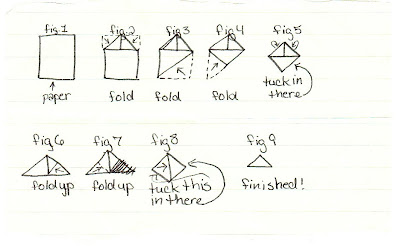 fig 1 fig 2 fig 3 fig 4 fig 5
paper fold fold fold tuck in
there
fig 6 fig 7 fig 8 fig 9
fold up fold up tuck this finished!
in there